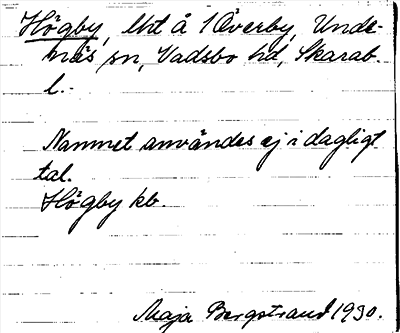 Högby, lht å 1 Överby, Unde-
näs sn, Vadsbo hd, Skarab.
l.
Namnet användes ej i dagligt
tal.
Högby kb.
Maja Bergstrand 1930.